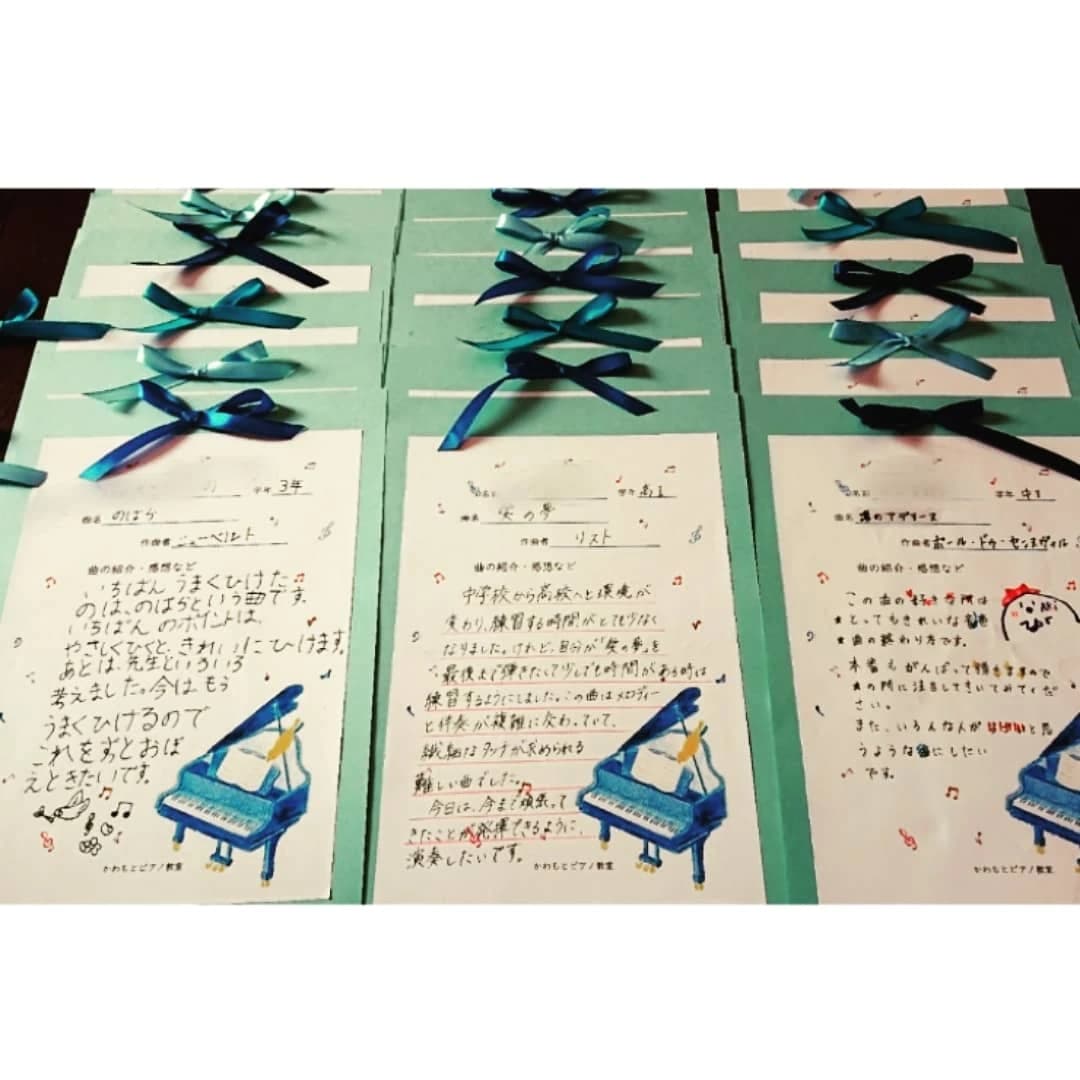 学年 3年
曲名 のばら
作曲者 シューベルト
曲の紹介・感想など
いちばんうまくひけた
のは、のばらという曲です。
いちばんのポイントは、
やさしくひくと、きれいにひけます。
あとは、先生といろいろ
考えました。今はもう
うまくひけるので
これをずっとおぼ
えときたいです。
かわもとピアノ教室
学年 高1
曲名 愛の夢
作曲者 リスト
曲の紹介・感想など
中学校から高校へと環境が
変わり、練習する時間がとても少なく
なりました。けれど、自分が「愛の夢」を
最後まで弾きたくて少しでも時間がある時は
練習するようにしました。この曲はメロディー
と伴奏が複雑に交わっていて、
繊細なタッチが求められる
難しい曲でした。
今日は、今まで頑張って
きたことが発揮できるように、
演奏したいです。
かわもとピアノ教室
学年 中1
曲名 渚のアデリーヌ
作曲者 ポール・ドゥ・センヌヴィル
曲の紹介・感想など
この曲の好きな所は
★とってもきれいな
★曲の終わり方です。
本番もがんばって弾きますので
★の所に注目してきいてみてくだ
さい。
また、いろんな人が と思
うような にしたい
です。
かわもとピアノ教室